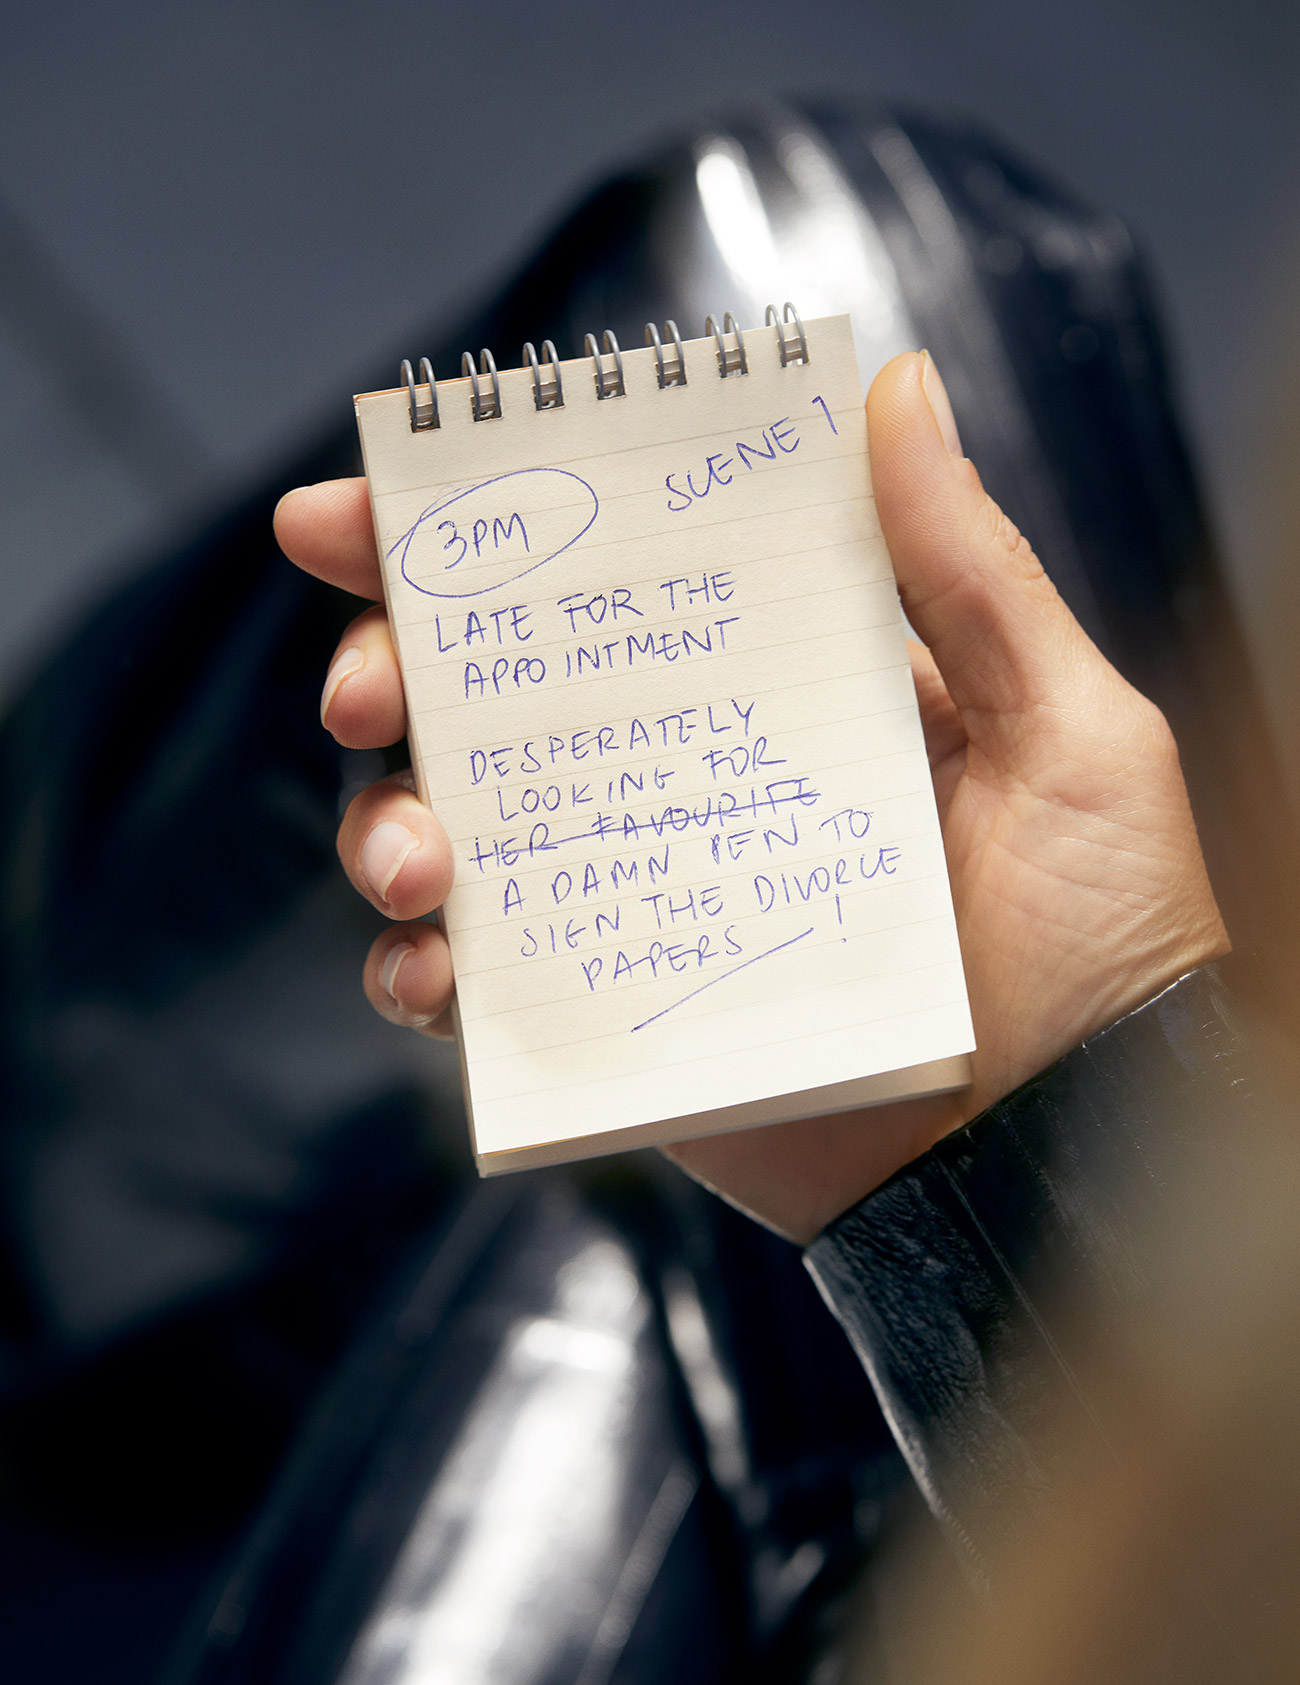 SCENE 1
3PM
LATE FOR THE
APPOINTMENT
DESPERATELY
LOOKING FOR
HER FAVOURITE
A DAMN PEN TO
SIGN THE DIVORCE
PAPERS !